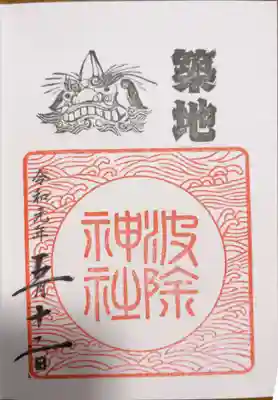 築地
波除
神社
令和元年五月十二日